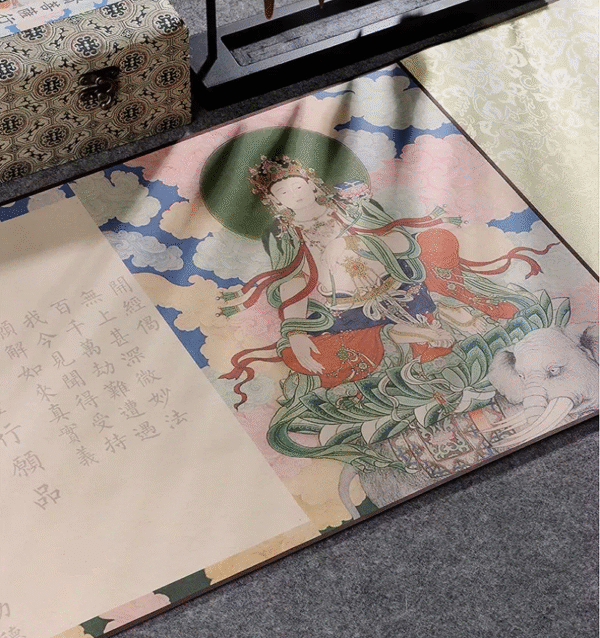 開經偈
無上甚深微妙法
百千萬劫難遭遇
我今見聞得受持
願解如來真實義
行願品